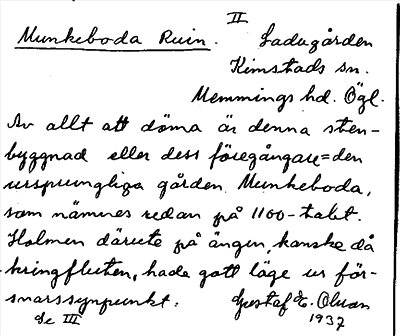 II
Munkeboda Ruin. Ladugården
Kimstads sn.
Memmings hd. Ögl.
Av allt att döma är denna sten-
byggnad eller dess föregångare = den
ursprungliga gården Munkeboda,
som nämnes redan på 1100-talet.
Holmen därute på ängen, kanske då
kringfluten, hade gott läge ur för-
svarssynpunkt.
Gustaf E. Olsson
Se III 1937